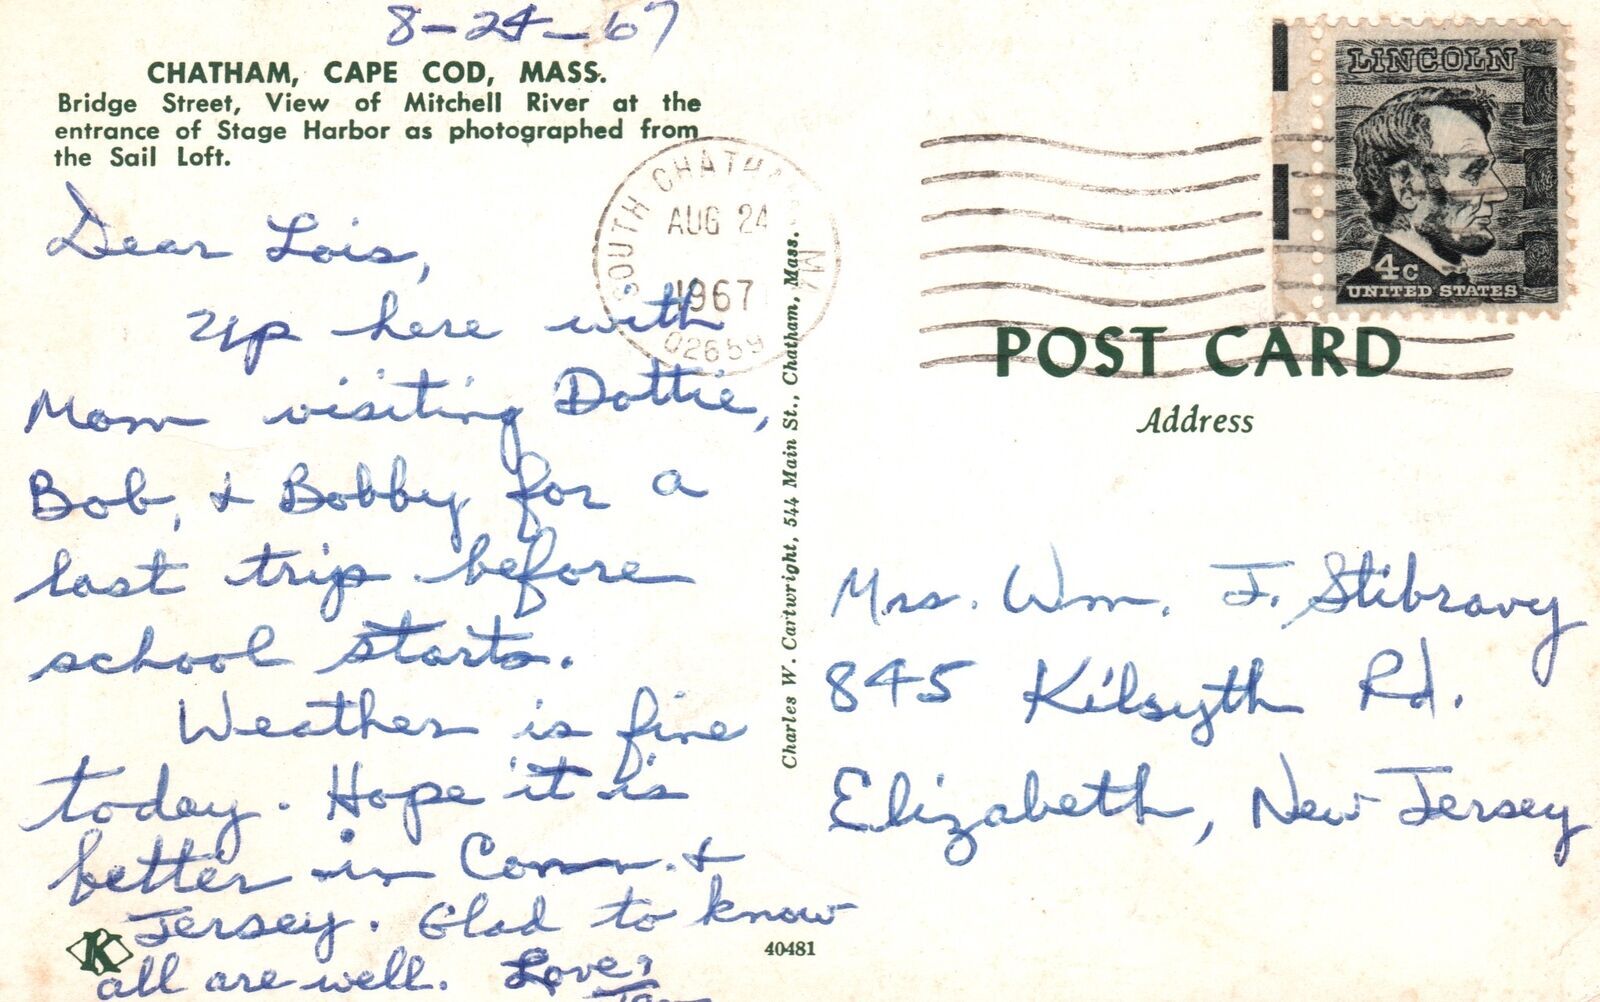 8-24-67
CHATHAM, CAPE COD, MASS.
Bridge Street, View of Mitchell River at the
entrance of Stage Harbor as photographed from
the Sail Loft.
Dear Lois,
Up here with
Mom visiting Dottie,
Bob, & Bobby for a
last trip before
school starts.
Weather is fine
today. Hope it is
better in Conn. &
Jersey. Glad to know
all are well. Love,
K
SOUTH CHATHAM MA
AUG 24
1967
02659
Charles W. Cartwright, 544 Main St., Chatham, Mass.
40481
LINCOLN
4c
UNITED STATES
POST CARD
Address
Mrs. Wm. J. Stibravy
845 Kilsyth Rd.
Elizabeth, New Jersey